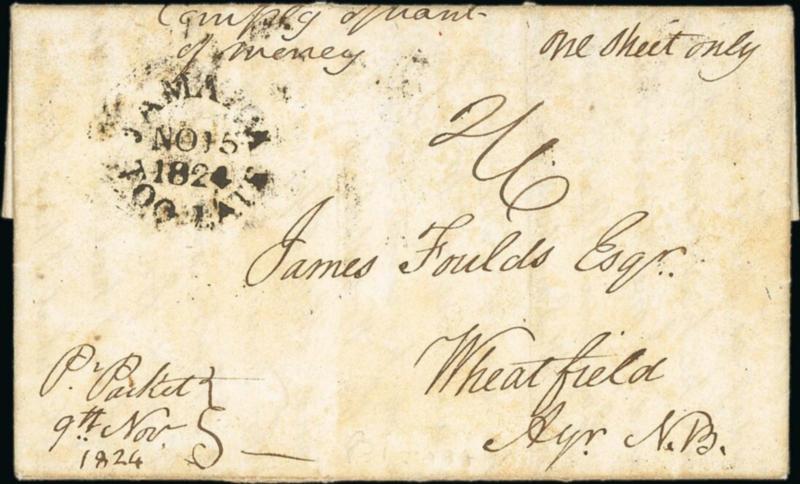 of money
one sheet only
JAMAICA
NO 15
1824
TOO LATE
2/6
James Foulds Esqr.
Wheatfield
Ayr. N.B.
Pr. Packet
9th Nov
1824